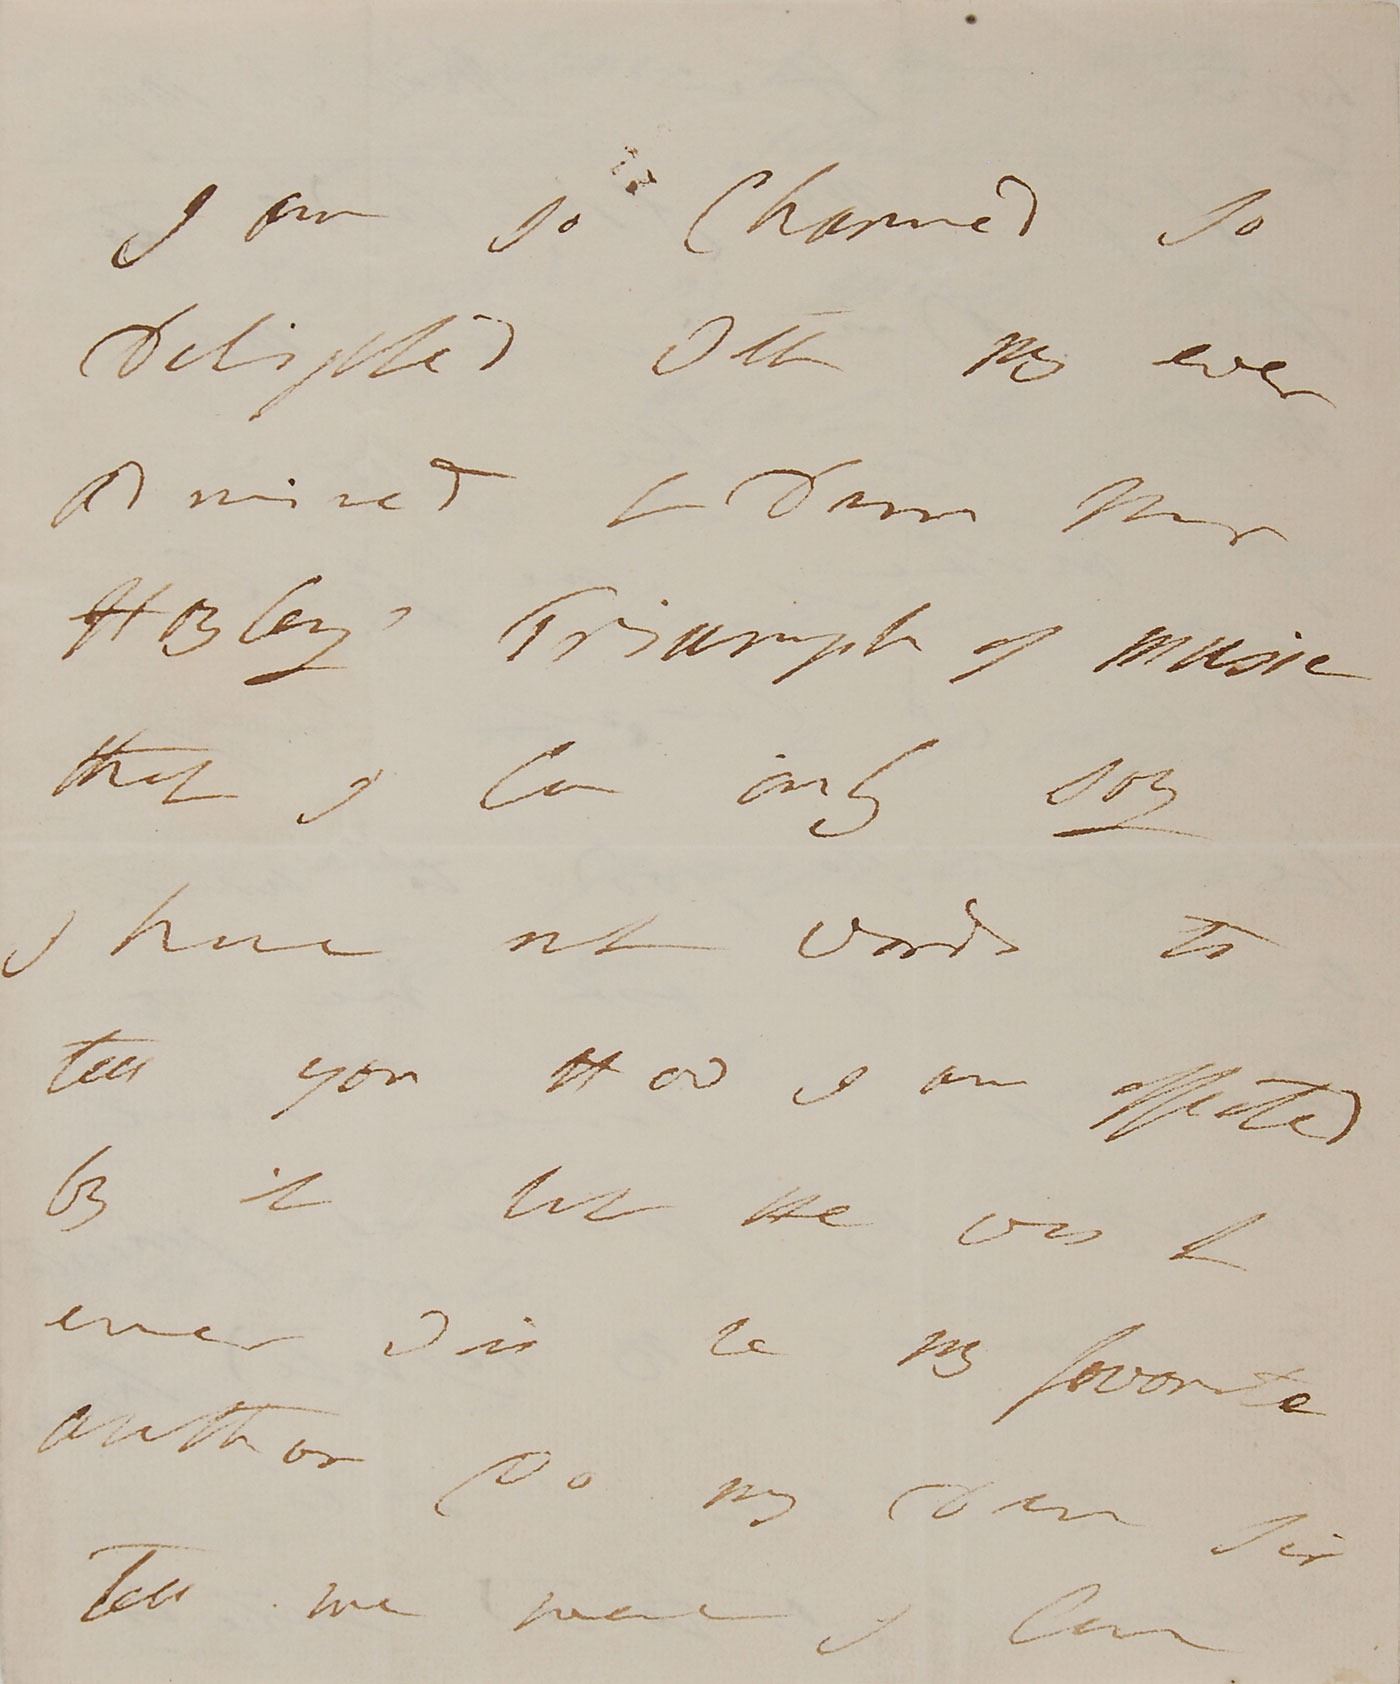 I am so Charmed so
Delighted With my ever
Admired & Dear Mr
Hayley' Triumph of music
that I can only say
I have not words to
tell you How I am affected
by it but He was &
ever Will be my favorite
author Do my Dear Sir
Tell me were I can